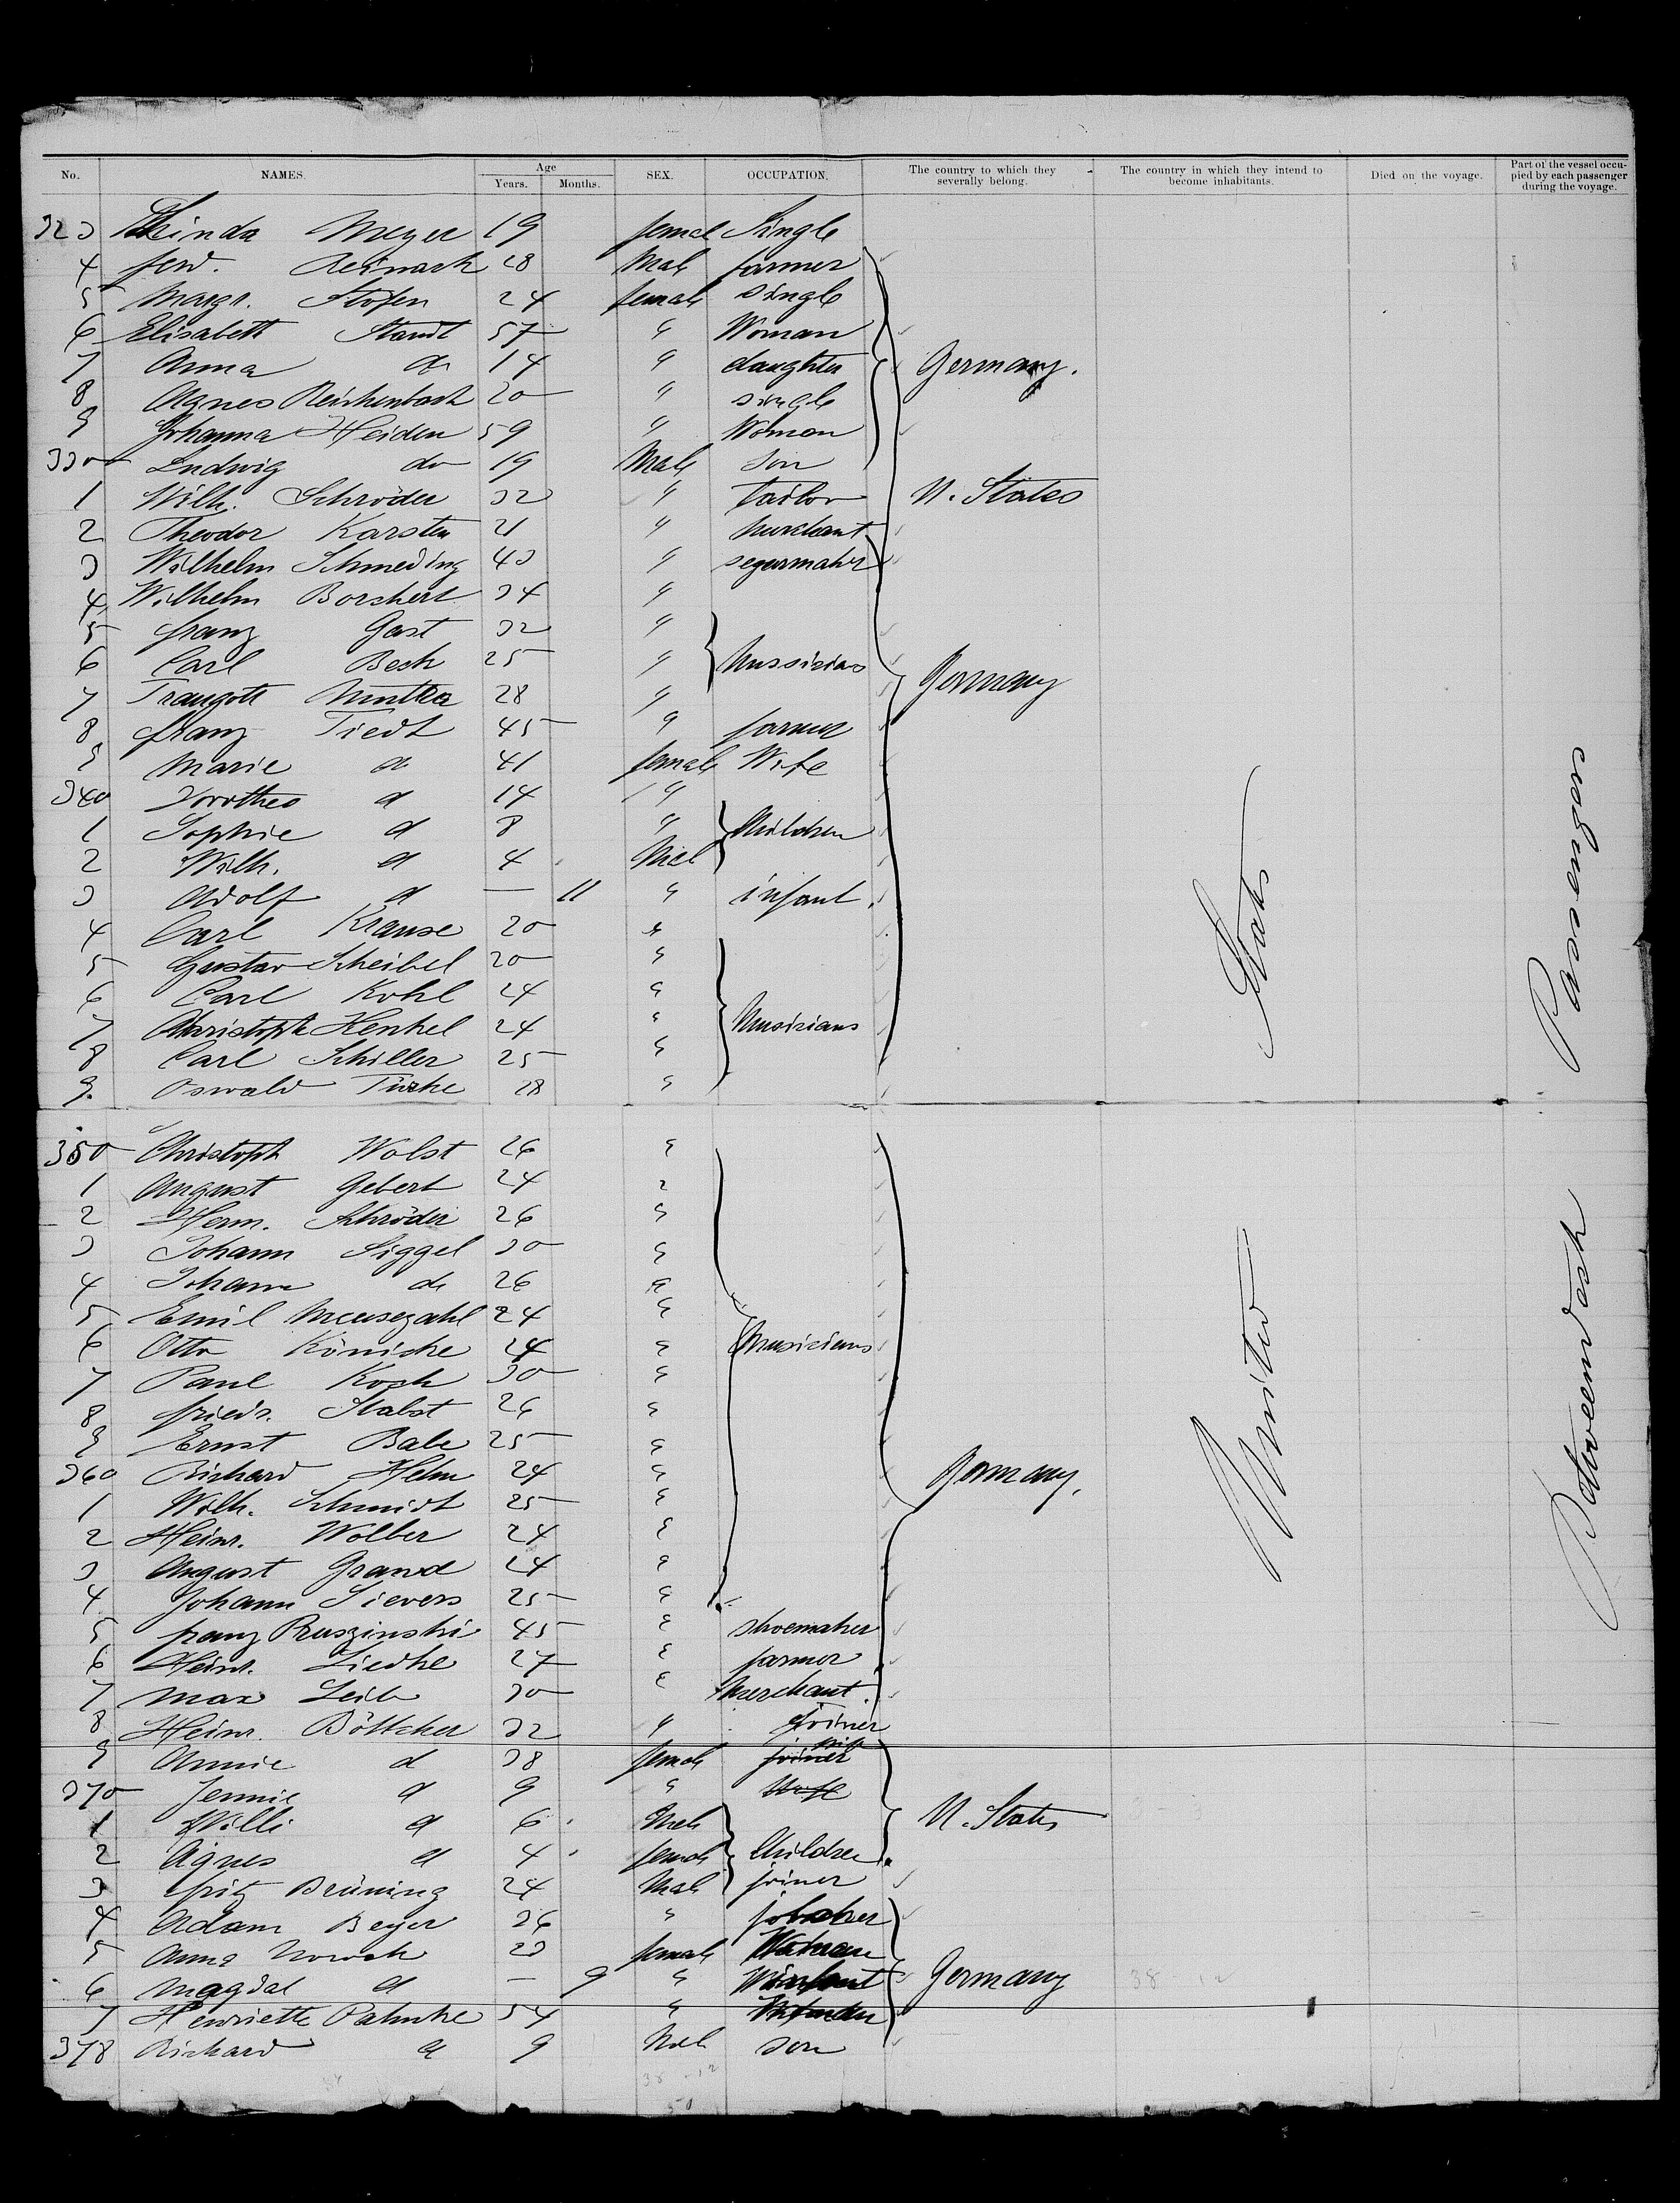 No. NAMES. Age Years. Months. SEX. OCCUPATION. The country to which they severally belong. The country in which they intend to become inhabitants. Died on the voyage. Part of the vessel occupied by each passenger during the voyage.
323 Meyer 19 femal Single
4 ferd. Reinach 28 Male farmer
5 Margr. 24 female single
6 Elisabeth Standt 57 " Woman
7 Anna do 14 " daughter Germany.
8 Agnes Reichenbach 20 " single
9 Johanna Heiden 59 " Woman
330 Ludwig do 19 Male Son
1 Wilh. Schröder 32 " Tailor U. States
2 Theodor Karsten 21 " Merchant
3 Wilhelm Schmeding 43 " segarmaker
4 Wilhelm Borchert 34 "
5 franz Gast 32 "
6 Carl Bech 25 " Mussicians Germany
7 Traugott 28 "
8 franz Tiedt 45 " farmer
9 Marie d 41 female Wife
340 Dorothea d 14 "
1 Sophie d 8 " Children
2 Wilh. d 4 Mal
3 Adolf d — 11 " infant.
4 Carl Krause 20 "
5 Gustav Scheibel 20 "
6 Carl Kohl 24 "
7 Christoph Henkel 24 " Musicians
8 Carl Schiller 25 "
9. Oswald Türke 28 "
350 Christoph Wolst 26 "
1 August Gebert 24 "
2 Herm. Schröder 26 "
3 Johann Siggel 30 "
4 Johann do 26 "
5 Emil Meusezahl 24 "
6 Otto Könicke 24 " Musicians
7 Paul Koch 30 "
8 friedr. Stabst 26 "
9 Ernst Babe 25 "
360 Richard Helm 24 " Germany.
1 Wilh. Schmidt 25 "
2 Heinr. Wolber 24 "
3 August Grand 24 "
4 Johann Sievers 25 "
5 franz Pruszinski 45 " shoemaker
6 Heinr. Liedke 27 " farmer
7 Max Leib 30 " Merchant.
8 Heinr. Böttcher 32 " Joiner
9 Annie d 38 female joiner wife
370 Jennie d 9 " Wife
1 Willi d 6 Male U. States
2 Agnes d 4 female Children
3 fritz Brüning 24 Male joiner
4 Adam Beyer 36 "
5 Anna Nowak 23 female Woman
6 Magdal d — 9 " infant Germany
7 Henriette Pahnke 54 "
378 Richard d 9 Male son
United States
Between deck Passengers